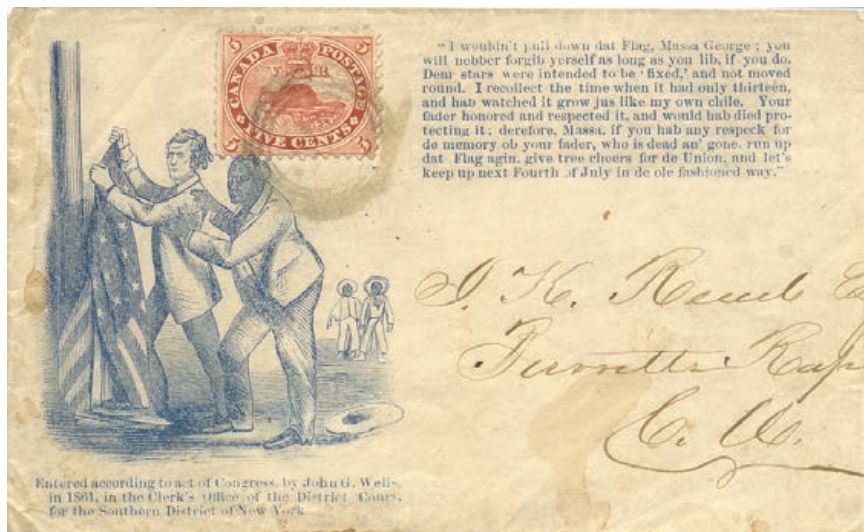 5 CANADA POSTAGE 5
V R
5 FIVE CENTS 5
"I wouldn't pull down dat Flag, Massa George; you
will nebber forgib yerself as long as you lib, if you do.
Dem stars were intended to be 'fixed,' and not moved
round. I recollect the time when it had only thirteen,
and hab watched it grow jus like my own chile. Your
fader honored and respected it, and would hab died pro-
tecting it; derefore, Massa, if you hab any respeck for
de memory ob your fader, who is dead an' gone, run up
dat Flag agin, give tree cheers for de Union, and let's
keep up next Fourth of July in de ole fashioned way."
J. K.
C. W.
Entered according to act of Congress, by John G. Wells,
in 1861, in the Clerk's Office of the District Court,
for the Southern District of New York